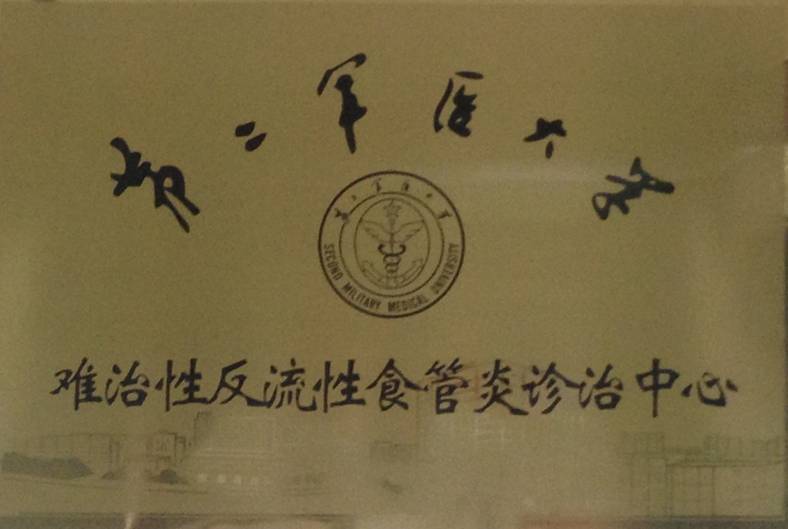 第二军医大学
第二军医大学
SECOND MILITARY MEDICAL UNIVERSITY
难治性反流性食管炎诊治中心